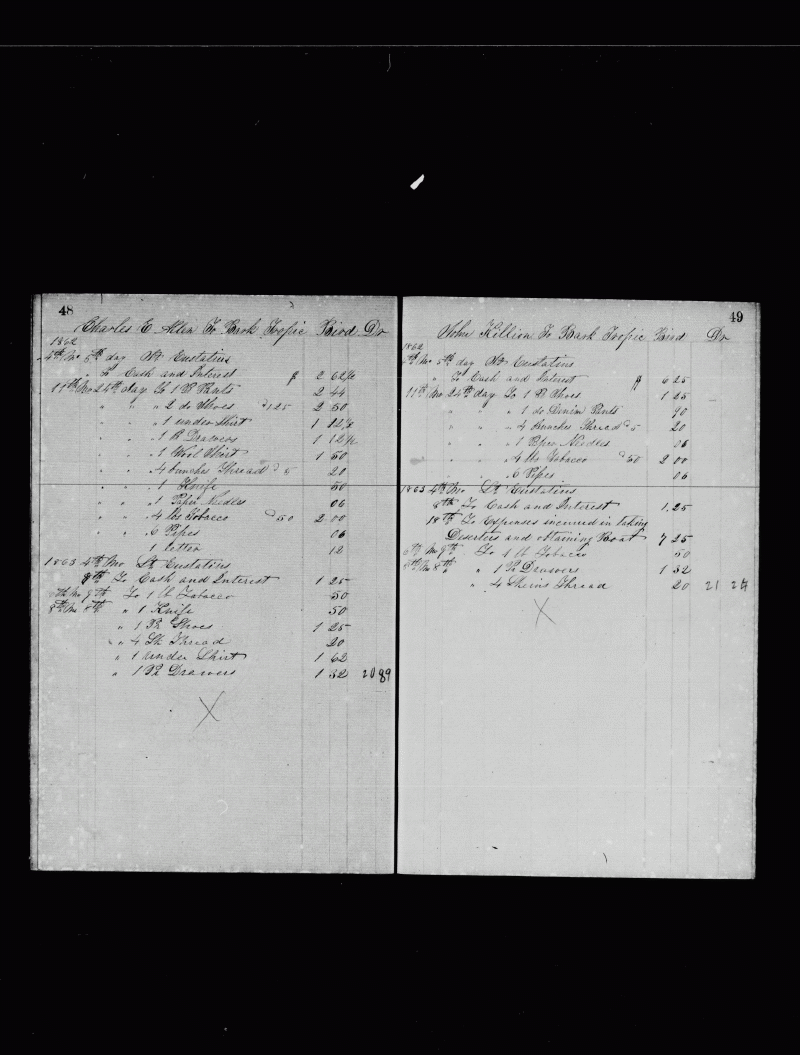 48
Charles E Allen To Bark Tropic Bird Dr
1862
4th Mo 5th day St Eustatius
" To Cash and Interest $ 2 62½
11th Mo 24th day To 1 P Pants 2 44
" " " 2 do Shoes @ 125 2 50
" " " 1 under Shirt 1 12½
" " " 1 P Drawers 1 12½
" " " 1 Wool Shirt 1 50
" " " 4 bunches Thread @ 5 20
" " " 1 Knife 50
" " " 1 Paper Needles 06
" " " 4 lbs Tobacco @ 50 2 00
" " " 6 Pipes 06
1 letter 12
1863 4th Mo St Eustatius
8th To Cash and Interest 1 25
7th Mo 9th To 1 lb Tobacco 50
8th Mo 8th " 1 Knife 50
" 1 Pr Shoes 1 25
" 4 Sk Thread 20
" 1 under Shirt 1 62
" 1 Pr Drawers 1 32 20 89
49
John Killion To Bark Tropic Bird Dr
1862
4th Mo 5th day St Eustatius
" To Cash and Interest $ 6 25
11th Mo 24th day To 1 P Shoes 1 25
" " " 1 do Denim Pants 90
" " " 4 bunches Thread @ 5 20
" " " 1 Paper Needles 06
" " " 4 lbs Tobacco @ 50 2 00
" " " 6 Pipes 06
1863 4th Mo St Eustatius
8th To Cash and Interest 1.25
18th To Expenses incurred in taking
Deserters and obtaining Boat 7 25
Mo 9th To 1 lb Tobacco 50
8th Mo 8th " 1 Pr Drawers 1 32
" 4 Skeins Thread 20 21 24